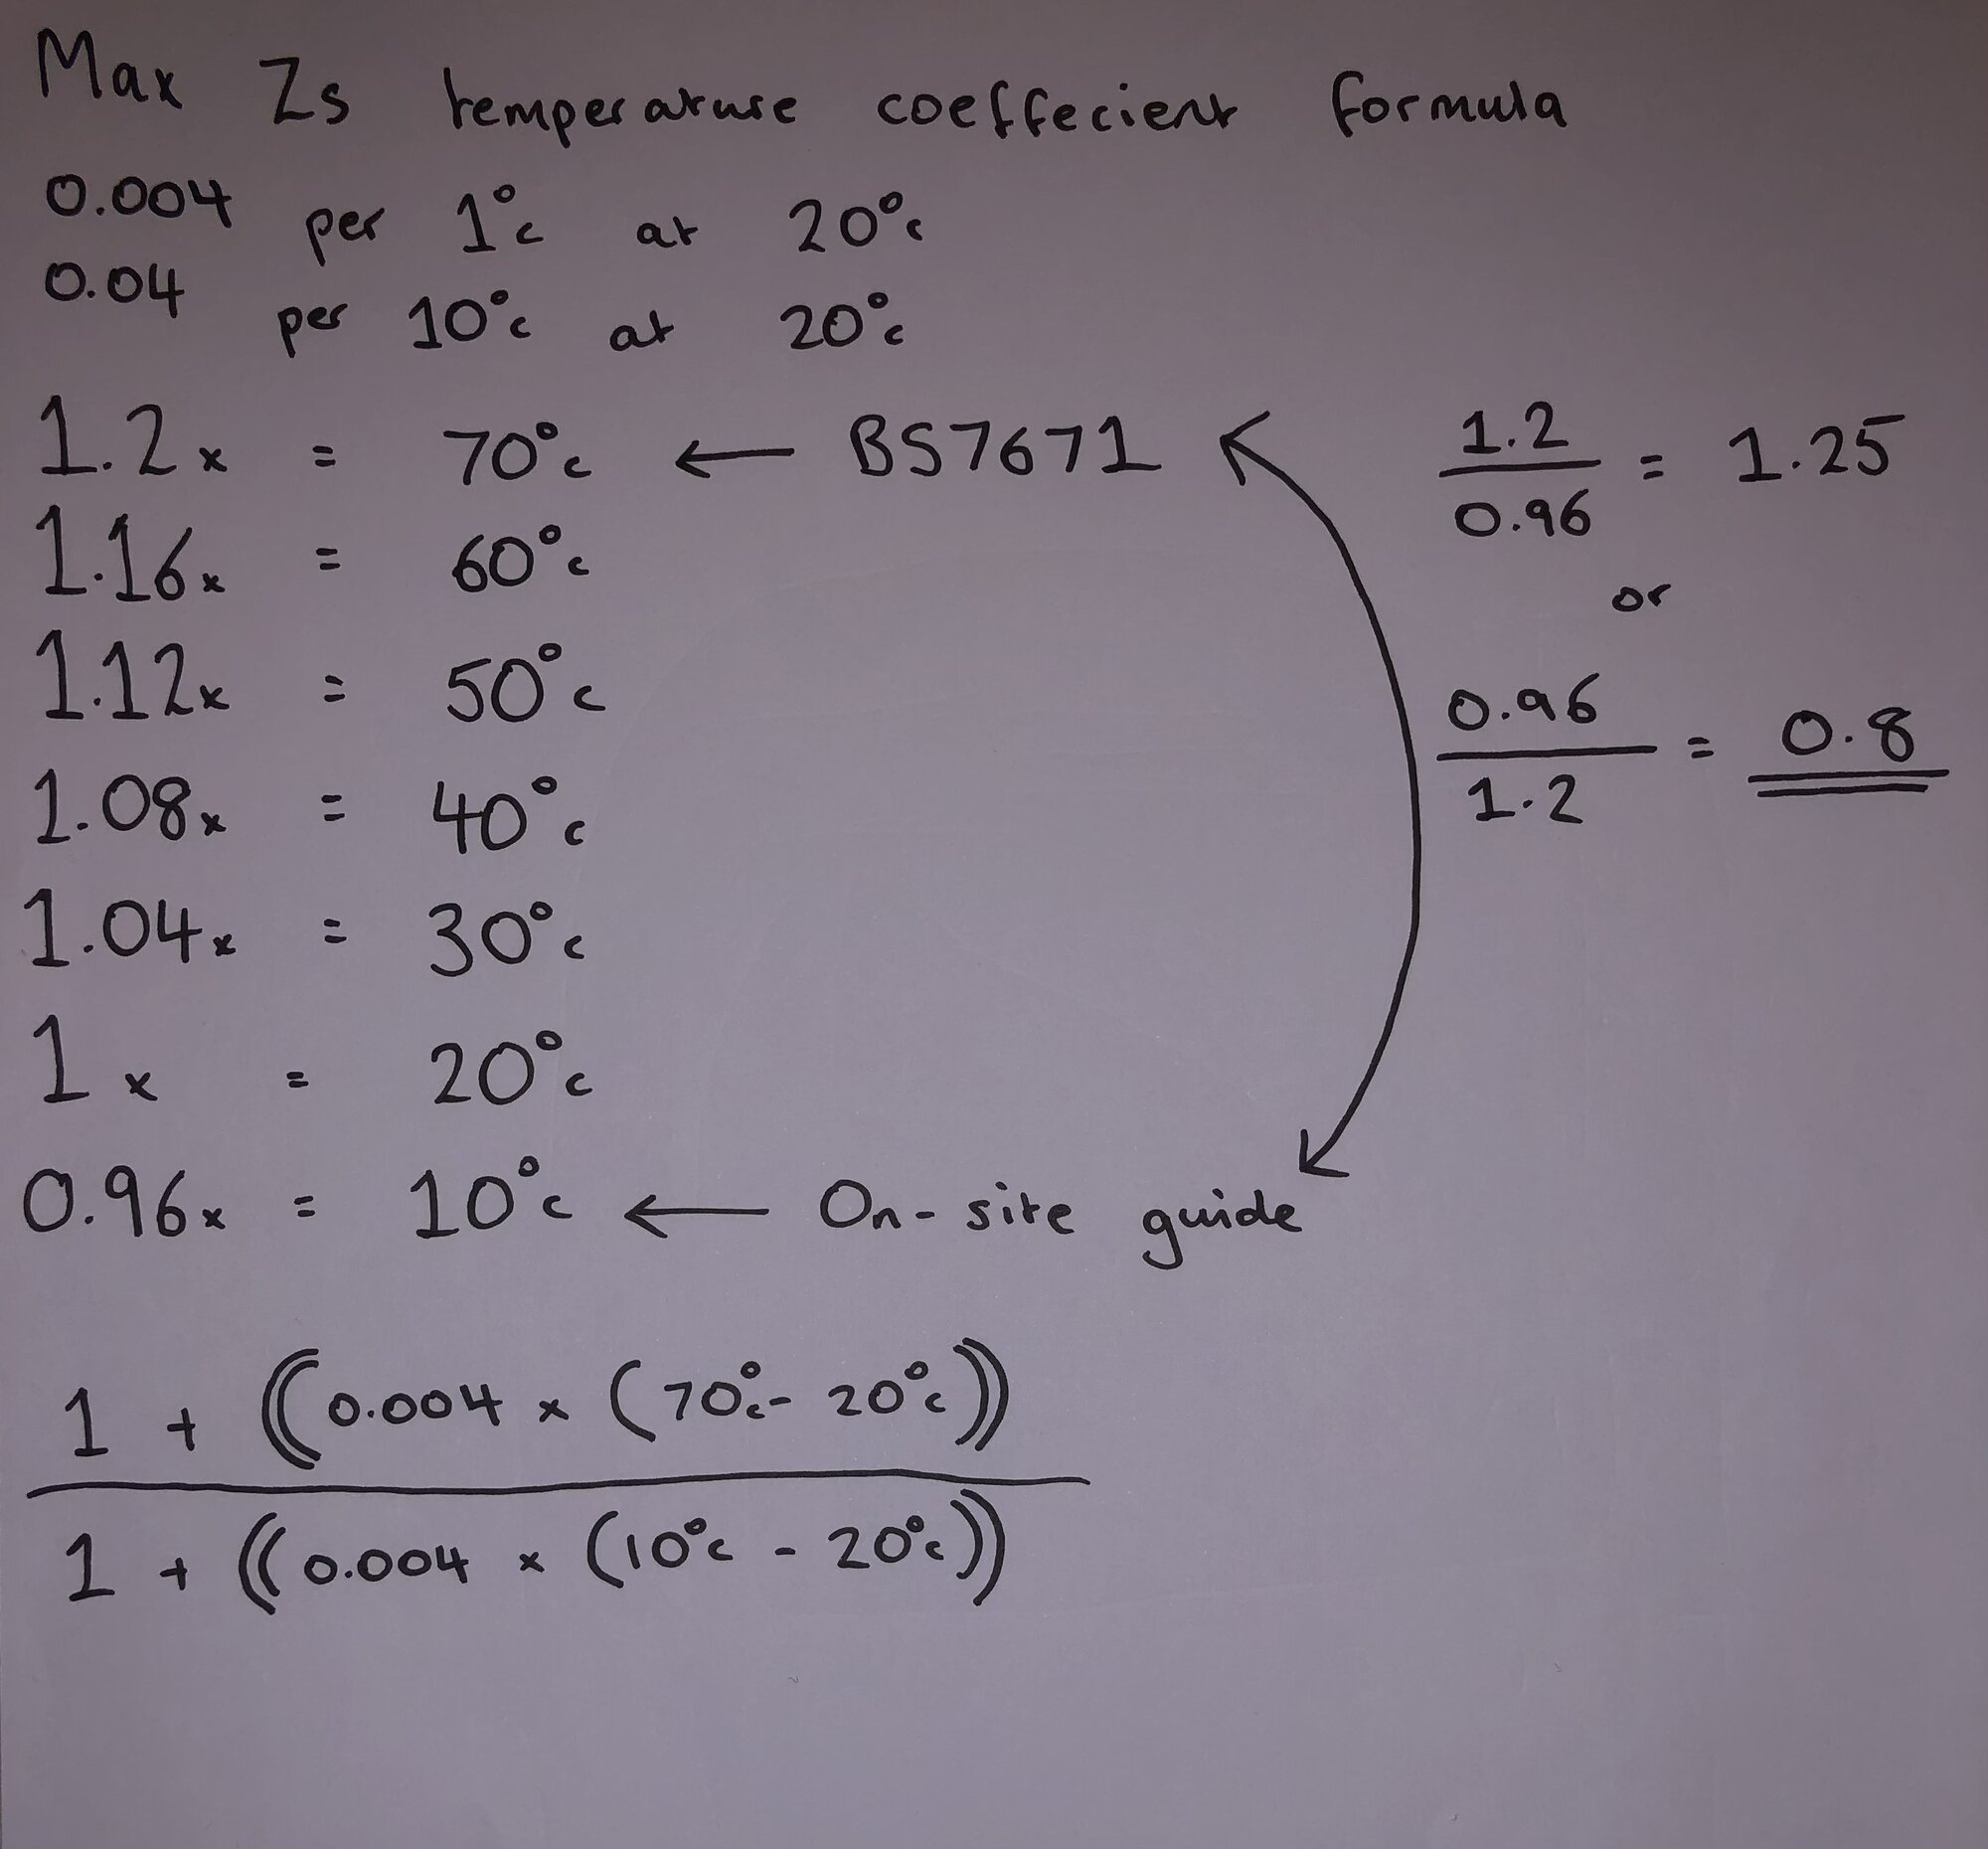 Max Zs temperature coeffecient formula
0.004 per 1°c at 20°c
0.04 per 10°c at 20°c
1.2x = 70°c ← BS7671
1.16x = 60°c
1.12x = 50°c
1.08x = 40°c
1.04x = 30°c
1x = 20°c
0.96x = 10°c ← On-site guide
1.2
0.96
= 1.25
or
0.96
1.2
= 0.8
1 + ((0.004 × (70°c - 20°c))
1 + ((0.004 × (10°c - 20°c))